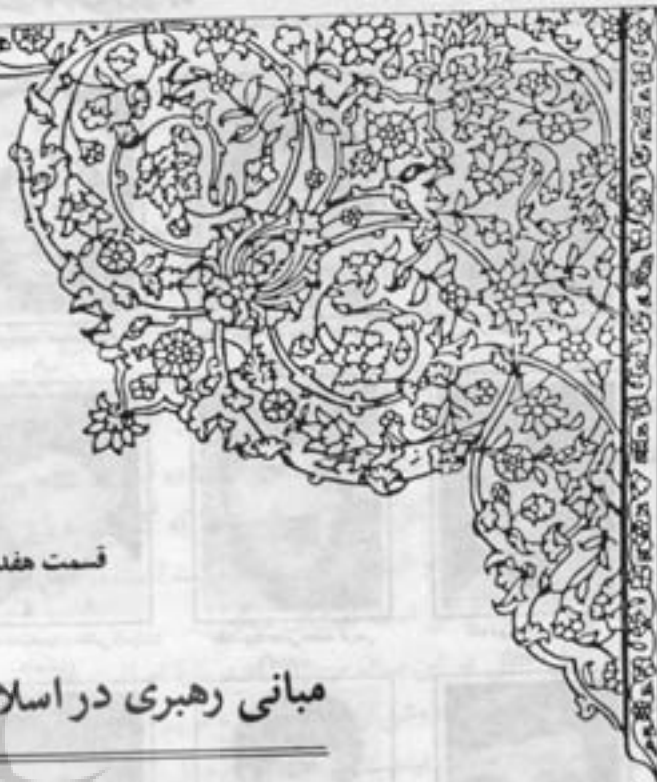 قسمت هفد
مبانی رهبری در اسلا